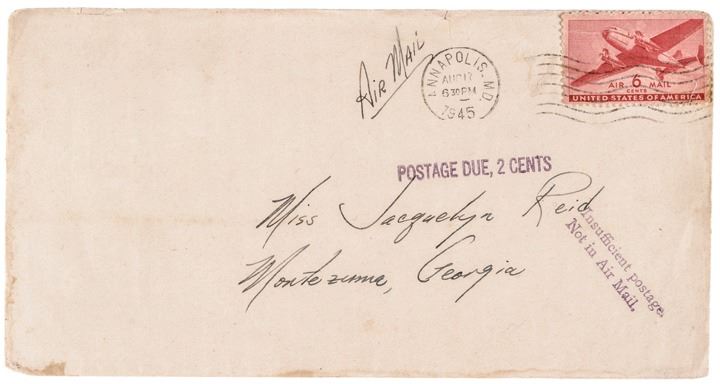 Air Mail
ANNAPOLIS, MD.
AUG 17
6 30 PM
1945
AIR 6 MAIL
CENTS
UNITED STATES OF AMERICA
POSTAGE DUE, 2 CENTS
Miss Jacquelyn Reid
Montezuma, Georgia
Insufficient postage.
Not in Air Mail.